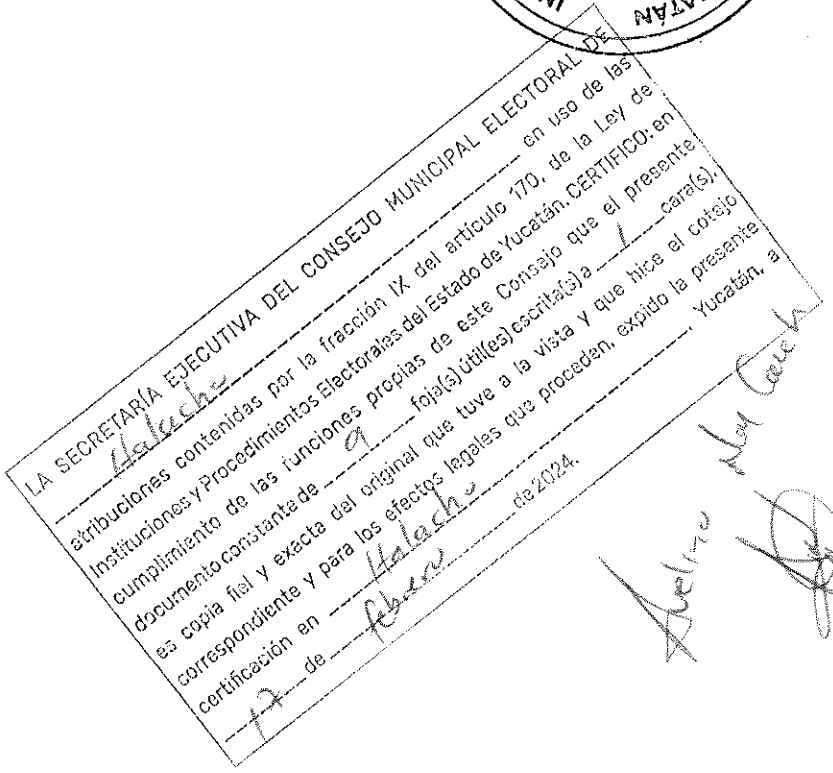 YUCATÁN
LA SECRETARÍA EJECUTIVA DEL CONSEJO MUNICIPAL ELECTORAL DE
Halacho en uso de las
atribuciones contenidas por la fracción IX del artículo 170, de la Ley de
Instituciones y Procedimientos Electorales del Estado de Yucatán, CERTIFICO: en
cumplimiento de las funciones propias de este Consejo que el presente
documento constante de 9 foja(s) útil(es) escrita(s) a 1 cara(s),
es copia fiel y exacta del original que tuve a la vista y que hice el cotejo
correspondiente y para los efectos legales que proceden, expido la presente
certificación en Halacho Yucatán, a
17 de febrero de 2024.
Avelino